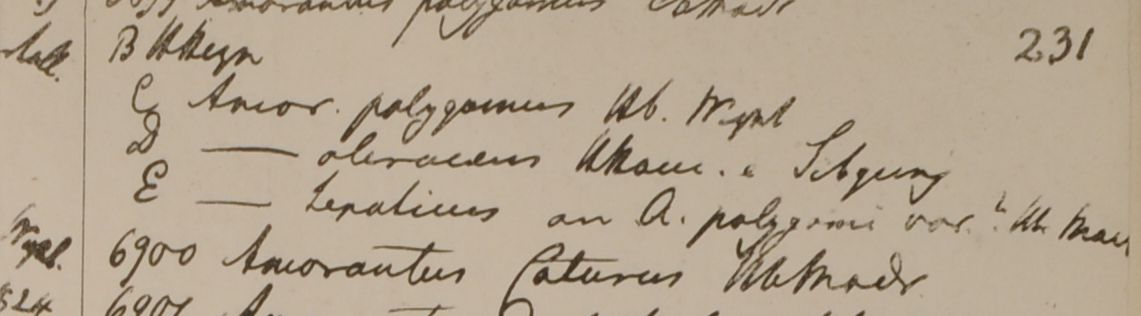 Amorantus polygamus
B HHeyn 231
C Amor. polygamus Hb. Wight
D — oleraceus HHam. e Silgung
E — hepaticus an A. polygami var.? Hb. Ham
Wight. 6900 Amorantus Caturus HbMadr
524 6901